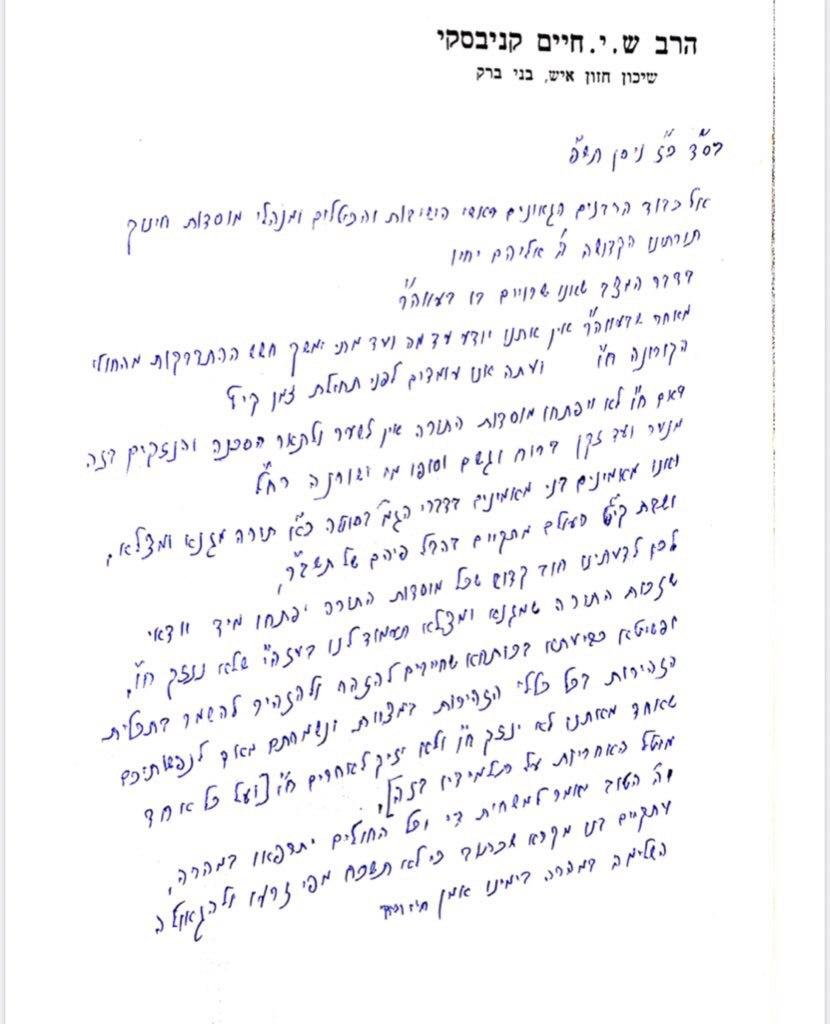 הרב ש.י.חיים קניבסקי
שיכון חזון איש, בני ברק
בס"ד כ"ז ניסן תש"פ
אל כבוד הרבנים הגאונים ראשי הישיבות והכוללים ומנהלי מוסדות חינוך
תורתינו הקדושה ה' אליהם יחיו
בדבר המצב שאנו שרויים בו בעוה"ר
מאחר שבעוה"ר אין אתנו יודע עד מה ועד מתי ימשך חשש ההתדבקות מהחולי
הקורונה ח"ו ועתה אנו עומדים לפני תחילת זמן קיץ
דאם ח"ו לא ייפתחו מוסדות התורה אין לשער ולתאר הסכנה והנזקים בזה
מנער ועד זקן ברוח וגשם וסופו מי ישורנה רח"ל
ואנו מאמינים בני מאמינים בדברי הגמ' בסוטה כ"א תורה מגנא ומצלא,
ושבת קי"ט העולם מתקיים בהבל פיהם של תשב"ר,
לכן לדעתינו חוב קדוש שכל מוסדות התורה יפתחו מיד וודאי
שזכות התורה שמגנא ומצלא תעמוד לנו בעזה"י שלא ננזק ח"ו,
ופשיטא כביעתא בכותחא שחייבים להזהר ולהזהיר להשמר בתכלית
הזהירות בכל כללי הזהירות במצוות ונשמרתם מאד לנפשותיכם
שאחד מאתנו לא ינזק ח"ו ולא יזיק לאחרים ח"ו [ועל כל אחד
מוטל האחריות על תלמידיו בזה],
וה' הטוב יאמר למשחית די וכל החולים יתרפאו במהרה,
ותקיים בנו מקרא שכתוב כי לא תשכח מפי זרעו ולהגאולה
השלימה במהרה בימינו אמן